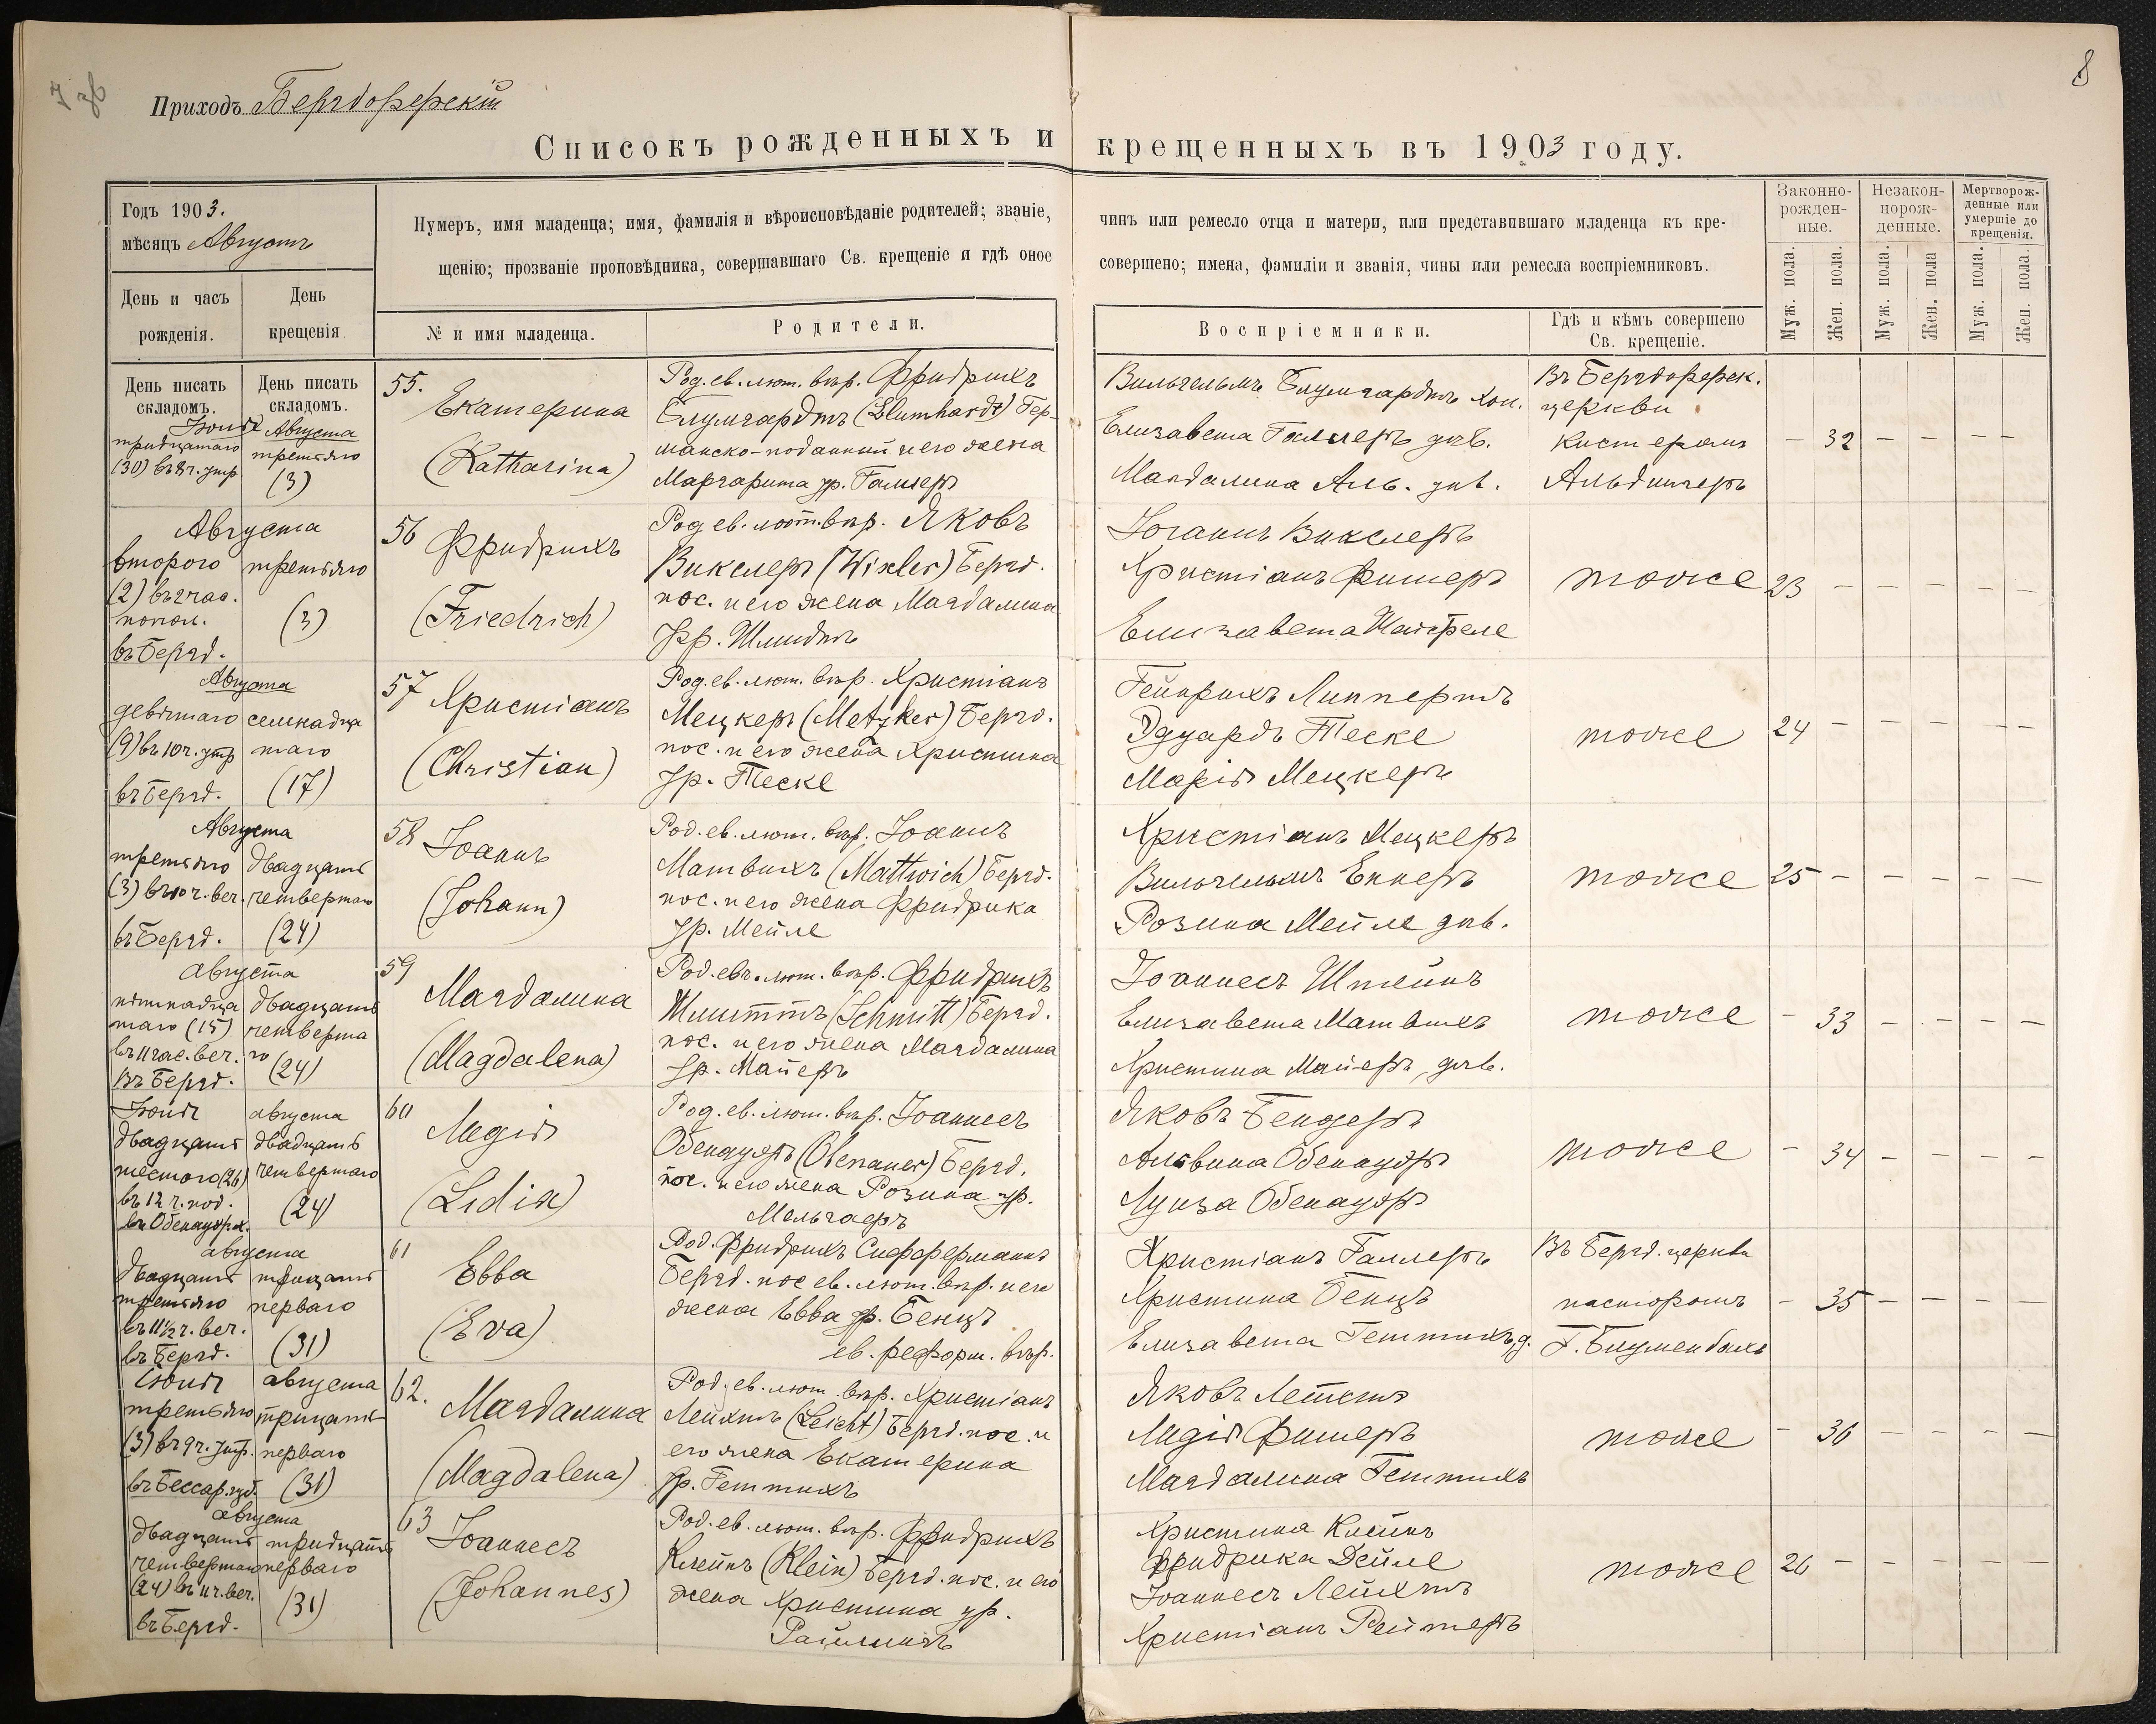 Приходъ Бергдорфскій
8
Списокъ рожденныхъ и крещенныхъ въ 1903 году.
Годъ 1903.
мѣсяцъ Августъ
День и часъ рожденія.
День крещенія.
Нумеръ, имя младенца; имя, фамилія и вѣроисповѣданіе родителей; званіе, чинъ или ремесло отца и матери, или представившаго младенца къ кре-
щенію; прозваніе проповѣдника, совершавшаго Св. крещеніе и гдѣ оное совершено; имена, фамиліи и званія, чины или ремесла воспріемниковъ.
№ и имя младенца.
Родители.
Воспріемники.
Гдѣ и кѣмъ совершено Св. крещеніе.
Законно-рожден-ные.
Незакон-норож-денные.
Мертворож-денные или умершіе до крещенія.
Муж. пола.
Жен. пола.
Муж. пола.
Жен. пола
Муж. пола.
Жен. пола.
День писать складомъ.
День писать складомъ.
тридцатаго
(30) въ 8 ч. утр
Августа
третьяго
(3)
55.
Екатерина
(Katharina)
Род. ев. лют. вѣр. Фридрихъ
Блумгардтъ (Blumhardt) Гер-
манско-подданный и его жена
Маргарита ур. Галлеръ
Вильгельмъ Блумгардтъ хол.
Елизавета Галлеръ дѣв.
Магдалина Аль. дѣв.
Въ Бергдорфск.
церкви
кистеромъ
Альдингеръ
– 32 – – – –
Августа
второго
(2) въ 2 час.
попол.
въ Бергд.
третьяго
(3)
56
Фридрихъ
(Friedrich)
Род. ев. лют. вѣр. Яковъ
Викслеръ (Wixler) Бергд.
пос. и его жена Магдалина
ур. Шмидтъ
Іоганнъ Викслеръ
Христіанъ Фишеръ
Елизавета
тоже
23 – – – – –
Августа
девятаго
(9) въ 10 ч. утр
въ Бергд.
семнадца
таго
(17)
57
Христіанъ
(Christian)
Род. ев. лют. вѣр. Христіанъ
Мецкеръ (Metzker) Бергд.
пос. и его жена Христина
ур. Теске
Гейнрихъ Липпертъ
Эдуардъ Теске
Марія Мецкеръ
тоже
24 – – – – –
Августа
третьяго
(3) въ 10 ч. веч.
въ Бергд.
двадцать
четвертаго
(24)
58
Іоаннъ
(Johann)
Род. ев. лют. вѣр. Іоаннъ
Матвихъ (Mattwich) Бергд.
пос. и его жена Фридрика
ур. Мейле
Христіанъ Мецкеръ
Вильгельмъ Еннеръ
Розина Мейле дѣв.
тоже
25 – – – – –
августа
пятнадца
таго (15)
въ 11 час. веч.
въ Бергд.
двадцать
четверта
го
(24)
59
Магдалина
(Magdalena)
Род. ев. лют. вѣр. Фридрихъ
Шмиттъ (Schmitt) Бергд.
пос. и его жена Магдалина
ур. Майеръ
Іоаннесъ Штейнъ
Елизавета Матвихъ
Христина Майеръ, дѣв.
тоже
– 33 – – – –
двадцать
шестого (26)
въ 12 ч. пол.
въ Обенауэра.
августа
двадцать
четвертаго
(24)
60
Лидія
(Lidia)
Род. ев. лют. вѣр. Іоаннесъ
Обенауэръ (Obenauer) Бергд.
пос. и его жена Розина ур.
Мельгаеръ
Яковъ Бендеръ
Альвина Обенауэръ
Луиза Обенауэръ
тоже
– 34 – – – –
августа
двадцать
третьяго
въ 11½ ч. веч.
въ Бергд.
трицать
перваго
(31)
61
Евва
(Eva)
Род. Фридрихъ Сиффермannъ
Бергд. пос. ев. лют. вѣр. и его
жена Евва ур. Бенцъ
ев. реформ. вѣр.
Христіанъ Галлеръ
Христина Бенцъ
Елизавета Геттихъ, д.
Въ Бергд. церкви
пасторомъ
Г. Блуменбахъ
– 35 – – – –
третьяго
(3) въ 9 ч. утр.
въ Бессар. губ.
августа
трицать
перваго
(31)
62.
Магдалина
(Magdalena)
Род. ев. лют. вѣр. Христіанъ
Лейхтъ (Leicht) Бергд. пос. и
его жена Екатерина
ур. Геттихъ
Яковъ
Лидія Фишеръ
Магдалина Геттихъ
тоже
– 36 – – – –
августа
двадцать
четвертаго
(24) въ 11 ч. веч.
въ Бергд.
тридцать
перваго
(31)
63
Іоаннесъ
(Johannes)
Род. ев. лют. вѣр. Фридрихъ
Клейнъ (Klein) Бергд. пос. и его
жена Христина ур.
Христина Клейнъ
Фридрика Дейле
Іоаннесъ Лейхтъ
Христіанъ Рейтеръ
тоже
26 – – – – –